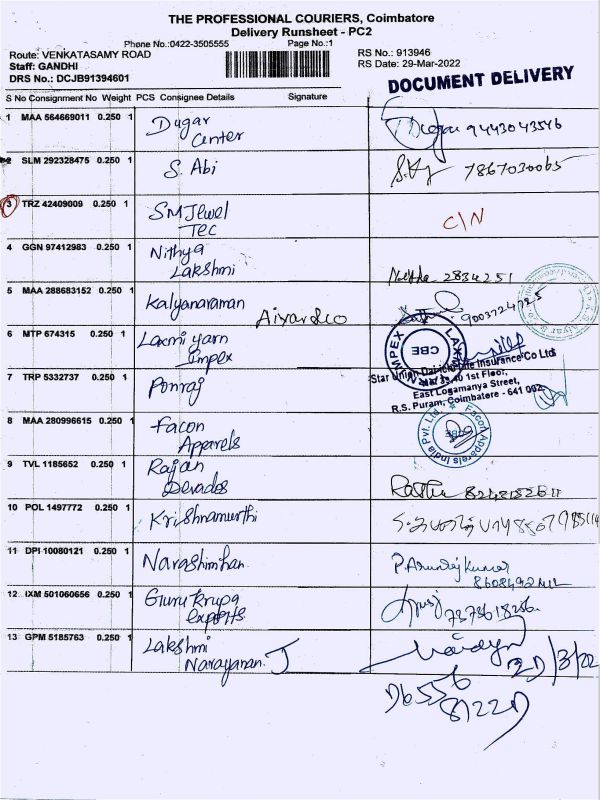 THE PROFESSIONAL COURIERS, Coimbatore
Delivery Runsheet - PC2
Phone No.:0422-3505555 Page No.:1
Route: VENKATASAMY ROAD RS No.: 913946
Staff: GANDHI RS Date: 29-Mar-2022
DRS No.: DCJB91394601
DOCUMENT DELIVERY
S No Consignment No Weight PCS Consignee Details Signature
1 MAA 564669011 0.250 1 Dugar 9443043546
Center
2 SLM 292328475 0.250 1 S. Abi 7867030065
3 TRZ 42409009 0.250 1 SM Jewel C/N
Tec
4 GGN 97412983 0.250 1 Nithya
Lakshmi 2834251
5 MAA 288683152 0.250 1 Kalyanaraman 9003724725
Aiyar & co
6 MTP 674315 0.250 1 Laxmi yarn
Impex
LAXMI IMPEX
CBE
7 TRP 5332737 0.250 1 Ponraj
Star Union Dai-ichi Life Insurance Co Ltd
1st Floor,
East Logamanya Street,
R.S. Puram, Coimbatore - 641 002.
8 MAA 280996615 0.250 1 Facon
Apparels
Facon Apparels India Pvt. Ltd.
9 TVL 1185652 0.250 1 Rajan
Devados
10 POL 1497772 0.250 1 Krishnamurthi
11 DPI 10080121 0.250 1 Narashimhan P. Arunraj kumar
12 IXM 501060656 0.250 1 Guru Krupa
exports 7373618286
13 GPM 5185763 0.250 1 Lakshmi
Narayanan J